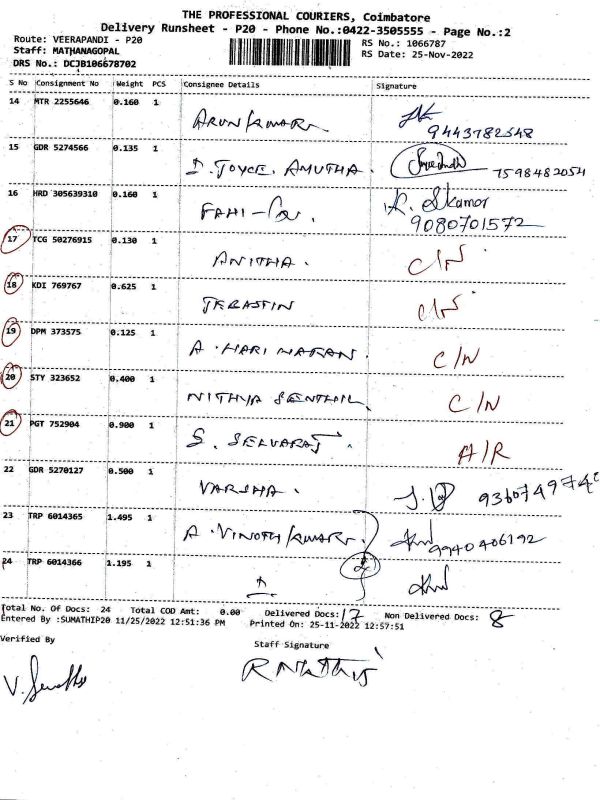 THE PROFESSIONAL COURIERS, Coimbatore
Delivery Runsheet - P20 - Phone No.:0422-3505555 - Page No.:2
Route: VEERAPANDI - P20
RS No.: 1066787
Staff: MATHANAGOPAL
RS Date: 25-Nov-2022
DRS No.: DCJB106678702
S No Consignment No Weight PCS Consignee Details Signature
14 MTR 2255646 0.160 1 ARUN KUMAR
9443782548
15 GDR 5274566 0.135 1 D. JOYCE. AMUTHA. 7598482054
16 HRD 305639310 0.160 1 FAHI-
9080701572
17 TCG 50276915 0.130 1 ANITHA. C/N
18 KDI 769767 0.625 1 JEBASTIN C/N
19 DPM 373575 0.125 1 A. HARI HARAN. C/N
20 STY 323652 0.400 1 NITHYA SENTHIL C/N
21 PGT 752904 0.900 1 S. SELVARAJ. A/R
22 GDR 5270127 0.500 1 VARSHA.
23 TRP 6014365 1.495 1 A. VINOTH KUMAR. 9940406192
24 TRP 6014366 1.195 1
Total No. Of Docs: 24 Total COD Amt: 0.00 Delivered Docs: 17 Non Delivered Docs: 8
Entered By :SUMATHIP20 11/25/2022 12:51:36 PM Printed On: 25-11-2022 12:57:51
Verified By
Staff Signature